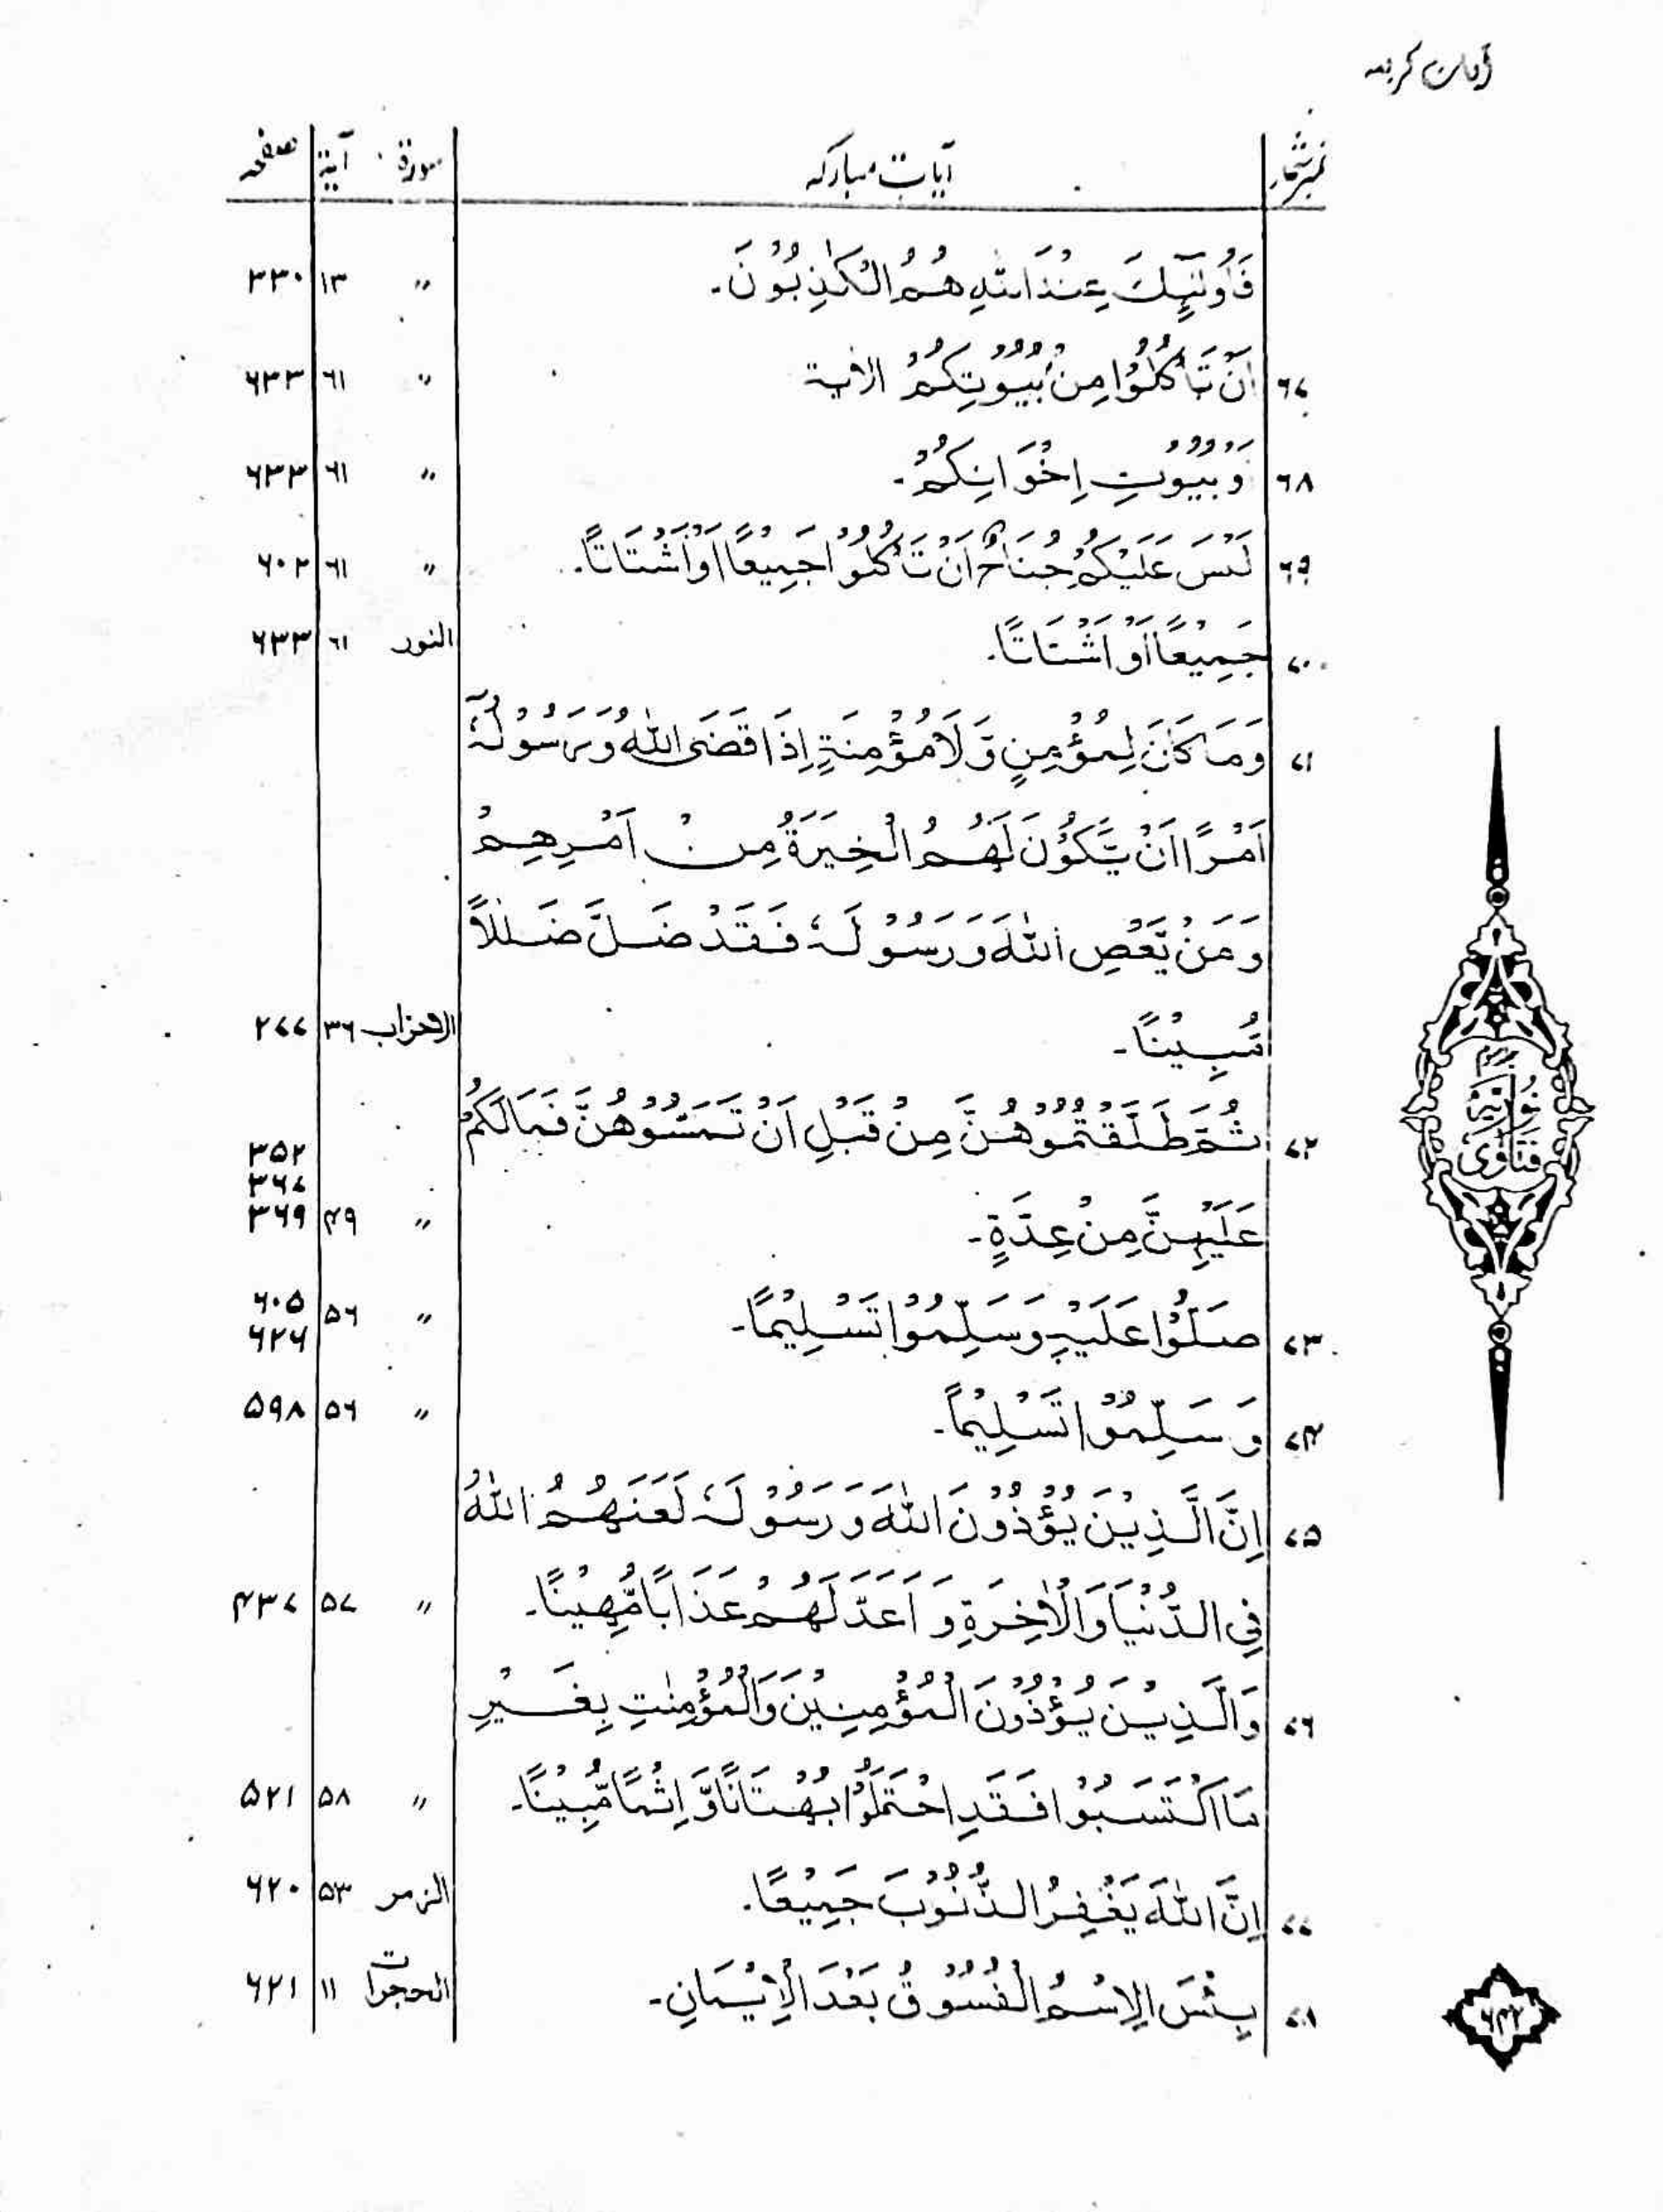 آیات کریمہ
نمبر شمار آیات مبارکہ سورۃ آیۃ صفحہ
فَاُولٰٓئِكَ عِنْدَ اللّٰهِ هُمُ الْكٰذِبُوْنَ۔ ״ ۱۳ ۳۳۰
۶۷ اَنْ تَاْكُلُوْا مِنْۢ بُيُوْتِكُمْ الاٰیۃ ״ ۶۱ ۶۳۳
۶۸ وَ بُيُوْتِ اِخْوَانِكُمْ۔ ״ ۶۱ ۶۳۳
۶۹ لَيْسَ عَلَيْكُمْ جُنَاحٌ اَنْ تَاْكُلُوْا جَمِيْعًا اَوْ اَشْتَاتًا۔ ״ ۶۱ ۶۰۲
۷۰ جَمِيْعًا اَوْ اَشْتَاتًا۔ النور ۶۱ ۶۳۳
۷۱ وَمَا كَانَ لِمُؤْمِنٍ وَّلَا مُؤْمِنَةٍ اِذَا قَضَى اللّٰهُ وَرَسُوْلُهٗٓ
اَمْرًا اَنْ يَّكُوْنَ لَهُمُ الْخِيَرَةُ مِنْ اَمْرِهِمْ
وَمَنْ يَّعْصِ اللّٰهَ وَرَسُوْلَهٗ فَقَدْ ضَلَّ ضَلٰلًا
مُّبِيْنًا۔ الاحزاب ۳۶ ۲۷۷
۷۲ ثُمَّ طَلَّقْتُمُوْهُنَّ مِنْ قَبْلِ اَنْ تَمَسُّوْهُنَّ فَمَا لَكُمْ ۳۵۲
۳۶۷
عَلَيْهِنَّ مِنْ عِدَّةٍ۔ ״ ۴۹ ۳۶۹
۷۳ صَلُّوْا عَلَيْهِ وَسَلِّمُوْا تَسْلِيْمًا۔ ״ ۵۶ ۶۰۵
۶۲۶
۷۴ وَ سَلِّمُوْا تَسْلِيْمًا۔ ״ ۵۶ ۵۹۸
۷۵ اِنَّ الَّذِيْنَ يُؤْذُوْنَ اللّٰهَ وَرَسُوْلَهٗ لَعَنَهُمُ اللّٰهُ
فِى الدُّنْيَا وَالْاٰخِرَةِ وَ اَعَدَّ لَهُمْ عَذَابًا مُّهِيْنًا۔ ״ ۵۷ ۴۳۷
۷۶ وَالَّذِيْنَ يُؤْذُوْنَ الْمُؤْمِنِيْنَ وَالْمُؤْمِنٰتِ بِغَيْرِ
مَا اكْتَسَبُوْا فَقَدِ احْتَمَلُوْا بُهْتَانًا وَّ اِثْمًا مُّبِيْنًا۔ ״ ۵۸ ۵۲۱
۷۷ اِنَّ اللّٰهَ يَغْفِرُ الذُّنُوْبَ جَمِيْعًا۔ الزمر ۵۳ ۶۲۰
۷۸ بِئْسَ الِاسْمُ الْفُسُوْقُ بَعْدَ الْاِيْمَانِ۔ الحجرات ۱۱ ۶۲۱
فتاوٰی نوریہ
۶۴۲